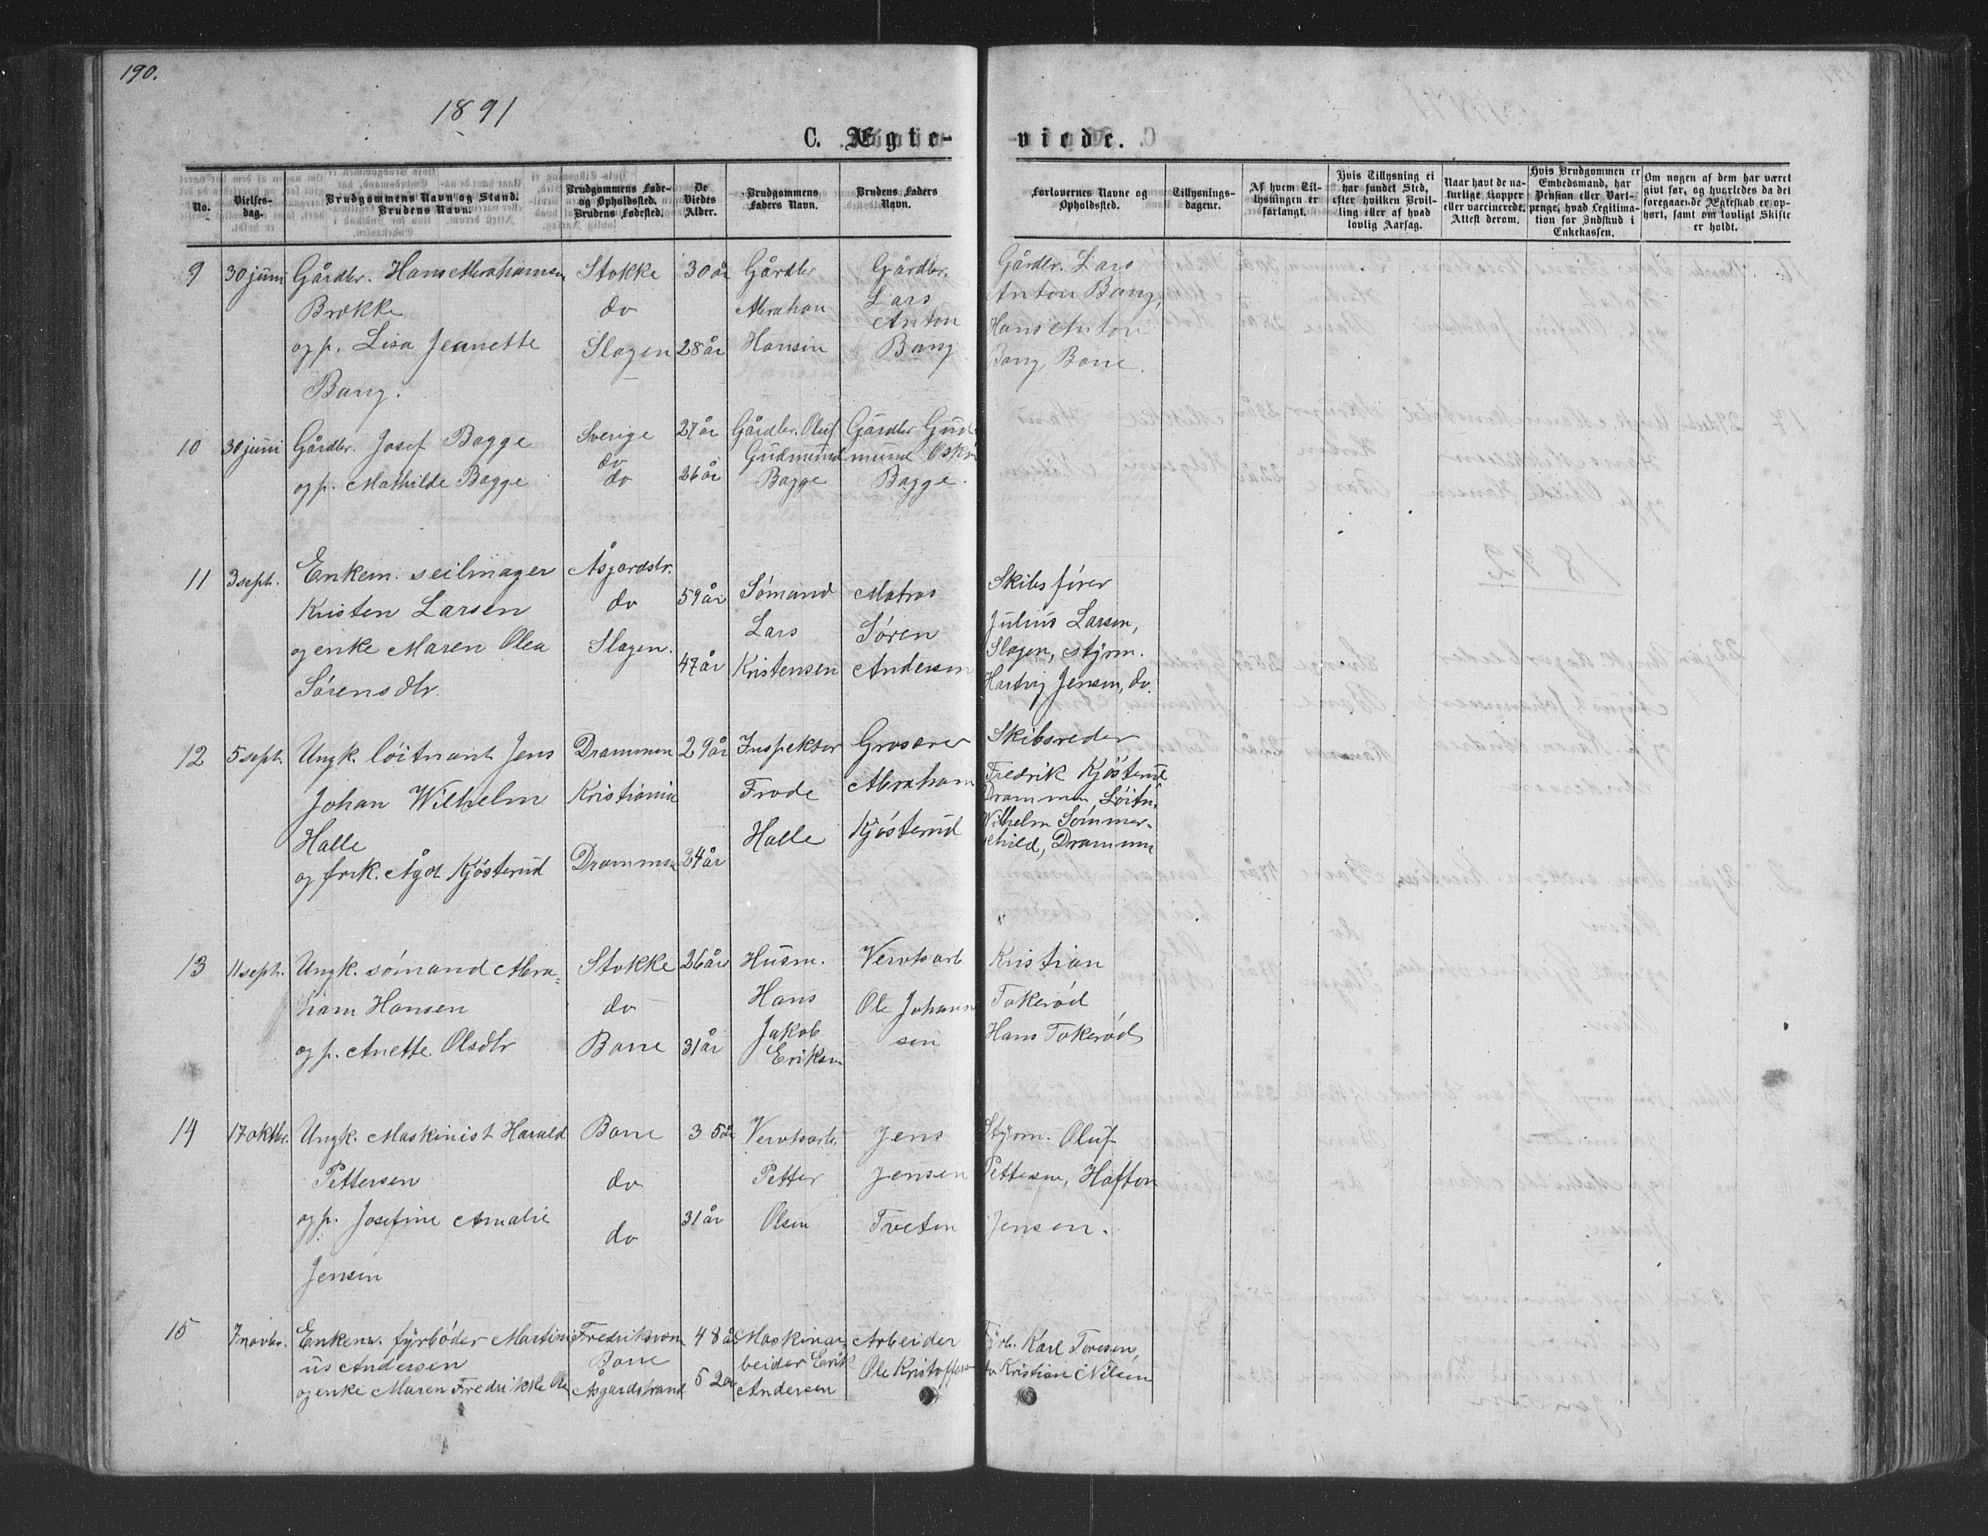 190.
1891
C. Ægte-
viede.
No.
Vielses-
dag.
Brudgommens Navn og Stand.
Brudens Navn.
Brudgommens Føde-
og Opholdssted.
Brudens Fødested.
De
Viedes
Alder.
Brudgommens
Faders Navn.
Brudens Faders
Navn.
Forlovernes Navne og
Opholdssted.
Tillysnings-
dagene.
Af hvem Til-
lysningen er
forlangt.
Hvis Tillysning ei
har fundet Sted,
efter hvilken Bevil-
ling eller af hvad
lovlig Aarsag.
Naar havt de na-
turlige Kopper
eller vaccinerede.
Attest derom.
Hvis Brudgommen er
Embedsmand, har
Pension eller Vart-
penge, hvad Legitima-
tion for Indskud i
Enkekassen.
Om nogen af dem har været
givt før, og hvorledes da det
foregaaende Ægteskab er op-
hørt, samt om lovligt Skifte
er holdt.
9
30 juni
Gårdbr. Hans Abrahamsen
Brække
og p. Lisa Jeanette
Bang.
Stokke
do
Slagen
30 år
28 år
Gårdbr
Abrahan
Hansen
Gårdbr.
Lars
Anton
Bang
Gårdbr. Lars
Anton Bang,
Hans Anton
Bang, Borre.
10
30 juni
Gårdbr. Josef Bagge
og p. Mathilde Bagge
Sverige
do
do
27 år
26 år
Gårdbr. Oluf
Gudmund
Bagge
Gårdbr Gud-
mund Oskar
Bagge.
11
3 sept.
Enkem. seilmager
Kristen Larsen
og enke Maren Olea
Sørensdtr.
Åsgardstr.
do
Slagen.
59 år
47 år
Sømand
Lars
Kristensen
Matros
Søren
Andersen
Skibsfører
Julius Larsen,
Slagen, styrm.
Hartvig Jensen, do.
12
5 sept.
Ungk. løitnant Jens
Johan Wilhelm
Halle
og frk. Ågot Kjøsterud
Drammen
Kristiania
Drammen
29 år
24 år
Inspektør
Frode
Halle
Grosserer
Abraham
Kjøsterud
Skibsreder
Fredrik Kjøsterud
Drammen, Løitn.
Wilhelm Sømmer-
child, Drammen
13
11 sept.
Ungk. sømand Abra-
ham Hansen
og p. Anette Olsdtr
Stokke
do
Borre
26 år
31 år
Husm.
Hans
Jakob
Eriksen
Vervtsarb
Ole Johann
sen
Kristian
Tokerød
Hans Tokerød
14
17 oktbr.
Ungk. Maskinist Harald
Pettersen
og p. Josefine Amalie
Jensen
Borre
do
do
35 år
31 år
Vervtsarb.
Petter
Olsen
Jens
Jensen
Tveten
Styrm. Oluf
Pettersen, Hafton
Jensen.
15
7 novbr.
Enkem. fyrbøder Martin-
us Andersen
og enke Maren Fredrikke Ols
Fredriksvæn
Borre
Åsgardstrand
48 år
52 år
Maskinar-
beider Erik
Andersen
Arbeider
Ole Kristoffersen
Fyrb. Karl Toresen,
do Kristian Nilsen